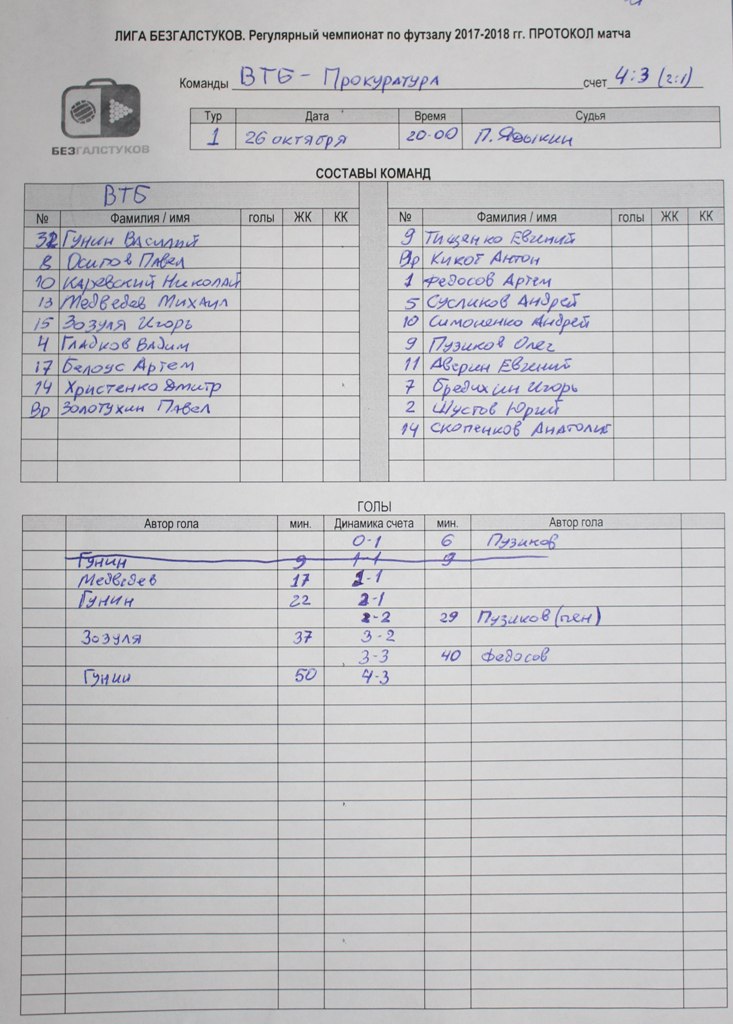 ЛИГА БЕЗГАЛСТУКОВ. Регулярный чемпионат по футзалу 2017-2018 гг. ПРОТОКОЛ матча
Команды ВТБ - Прокуратура счет 4:3 (2:1)
БЕЗГАЛСТУКОВ
Тур Дата Время Судья
1 26 октября 20-00 П. Ядыкин
СОСТАВЫ КОМАНД
ВТБ
№ Фамилия / имя голы ЖК КК № Фамилия / имя голы ЖК КК
32 Гунин Василий 9 Тищенко Евгений
8 Осипов Павел Вр Кикот Антон
10 Каревский Николай 1 Федосов Артем
13 Медведев Михаил 5 Сусликов Андрей
15 Зозуля Игорь 10 Симоненко Андрей
4 Гладков Вадим 9 Пузиков Олег
17 Белоус Артем 11 Аверин Евгений
14 Христенко Дмитр 7 Бредихин Игорь
Вр Золотухин Павел 2 Шустов Юрий
14 Скопенков Анатолий
ГОЛЫ
Автор гола мин. Динамика счета мин. Автор гола
0-1 6 Пузиков
Гунин 9 1-1 9
Медведев 17 1-1
Гунин 22 2-1
2-2 29 Пузиков (пен)
Зозуля 37 3-2
3-3 40 Федосов
Гунин 50 4-3